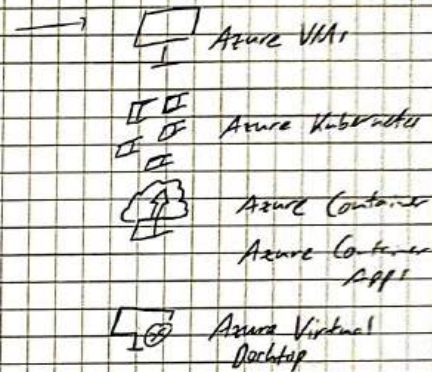 Azure VMs
Azure Kubernetes
Azure Container
Azure Container
Apps
Azure Virtual
Desktop